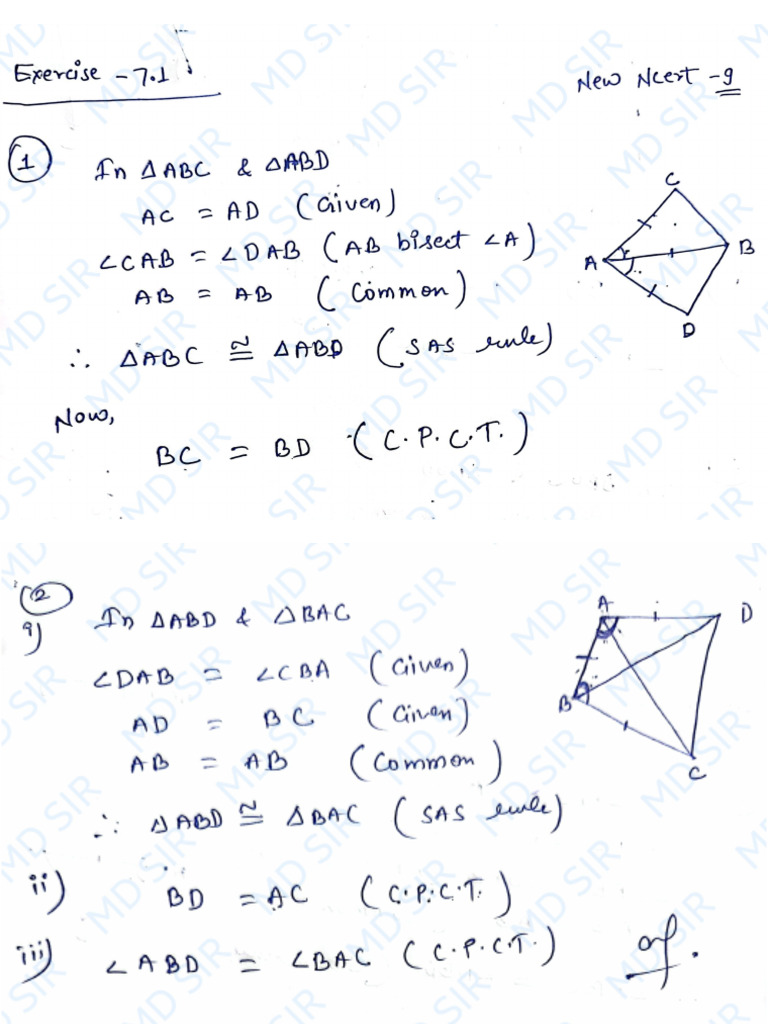 Exercise - 7.1
New Ncert - 9
1
In △ABC & △ABD
AC = AD (Given)
∠CAB = ∠DAB (AB bisect ∠A)
AB = AB (Common)
∴ △ABC ≅ △ABD (SAS rule)
Now,
BC = BD (C.P.C.T.)
C
A
B
D
2
i)
In △ABD & △BAC
∠DAB = ∠CBA (Given)
AD = BC (Given)
AB = AB (Common)
∴ △ABD ≅ △BAC (SAS rule)
ii) BD = AC (C.P.C.T.)
iii) ∠ABD = ∠BAC (C.P.C.T.)
A
D
B
C
MD SIR